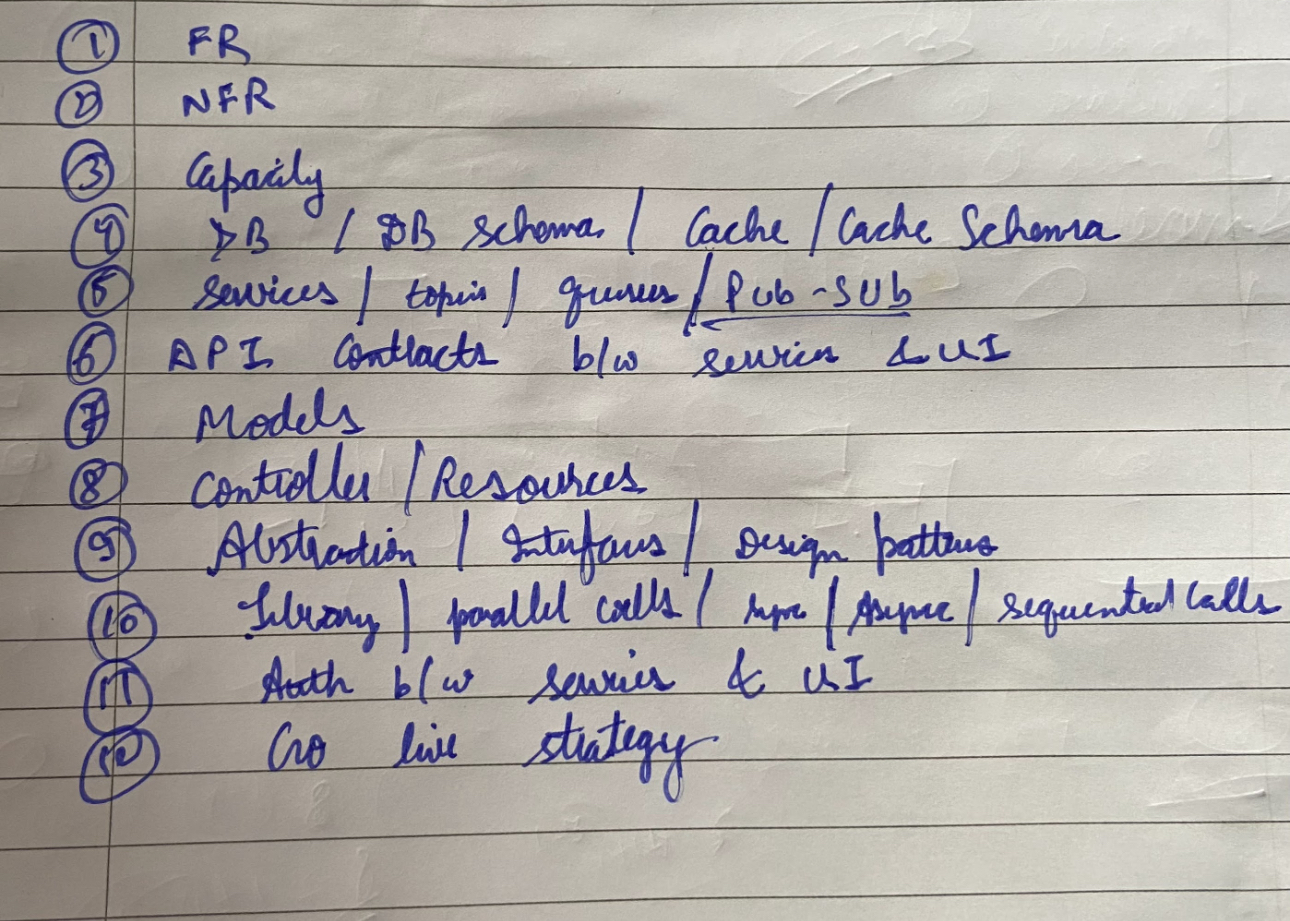 ① FR
② NFR
③ Capacity
④ DB / DB schema / Cache / Cache Schema
⑤ services / topics / queues / Pub-SUb
⑥ API contracts b/w services & UI
⑦ Models
⑧ Controller / Resources
⑨ Abstraction / Interfaces / Design patterns
⑩ Library / parallel calls / sync / Async / sequential calls
⑪ Auth b/w services & UI
⑫ Go live strategy